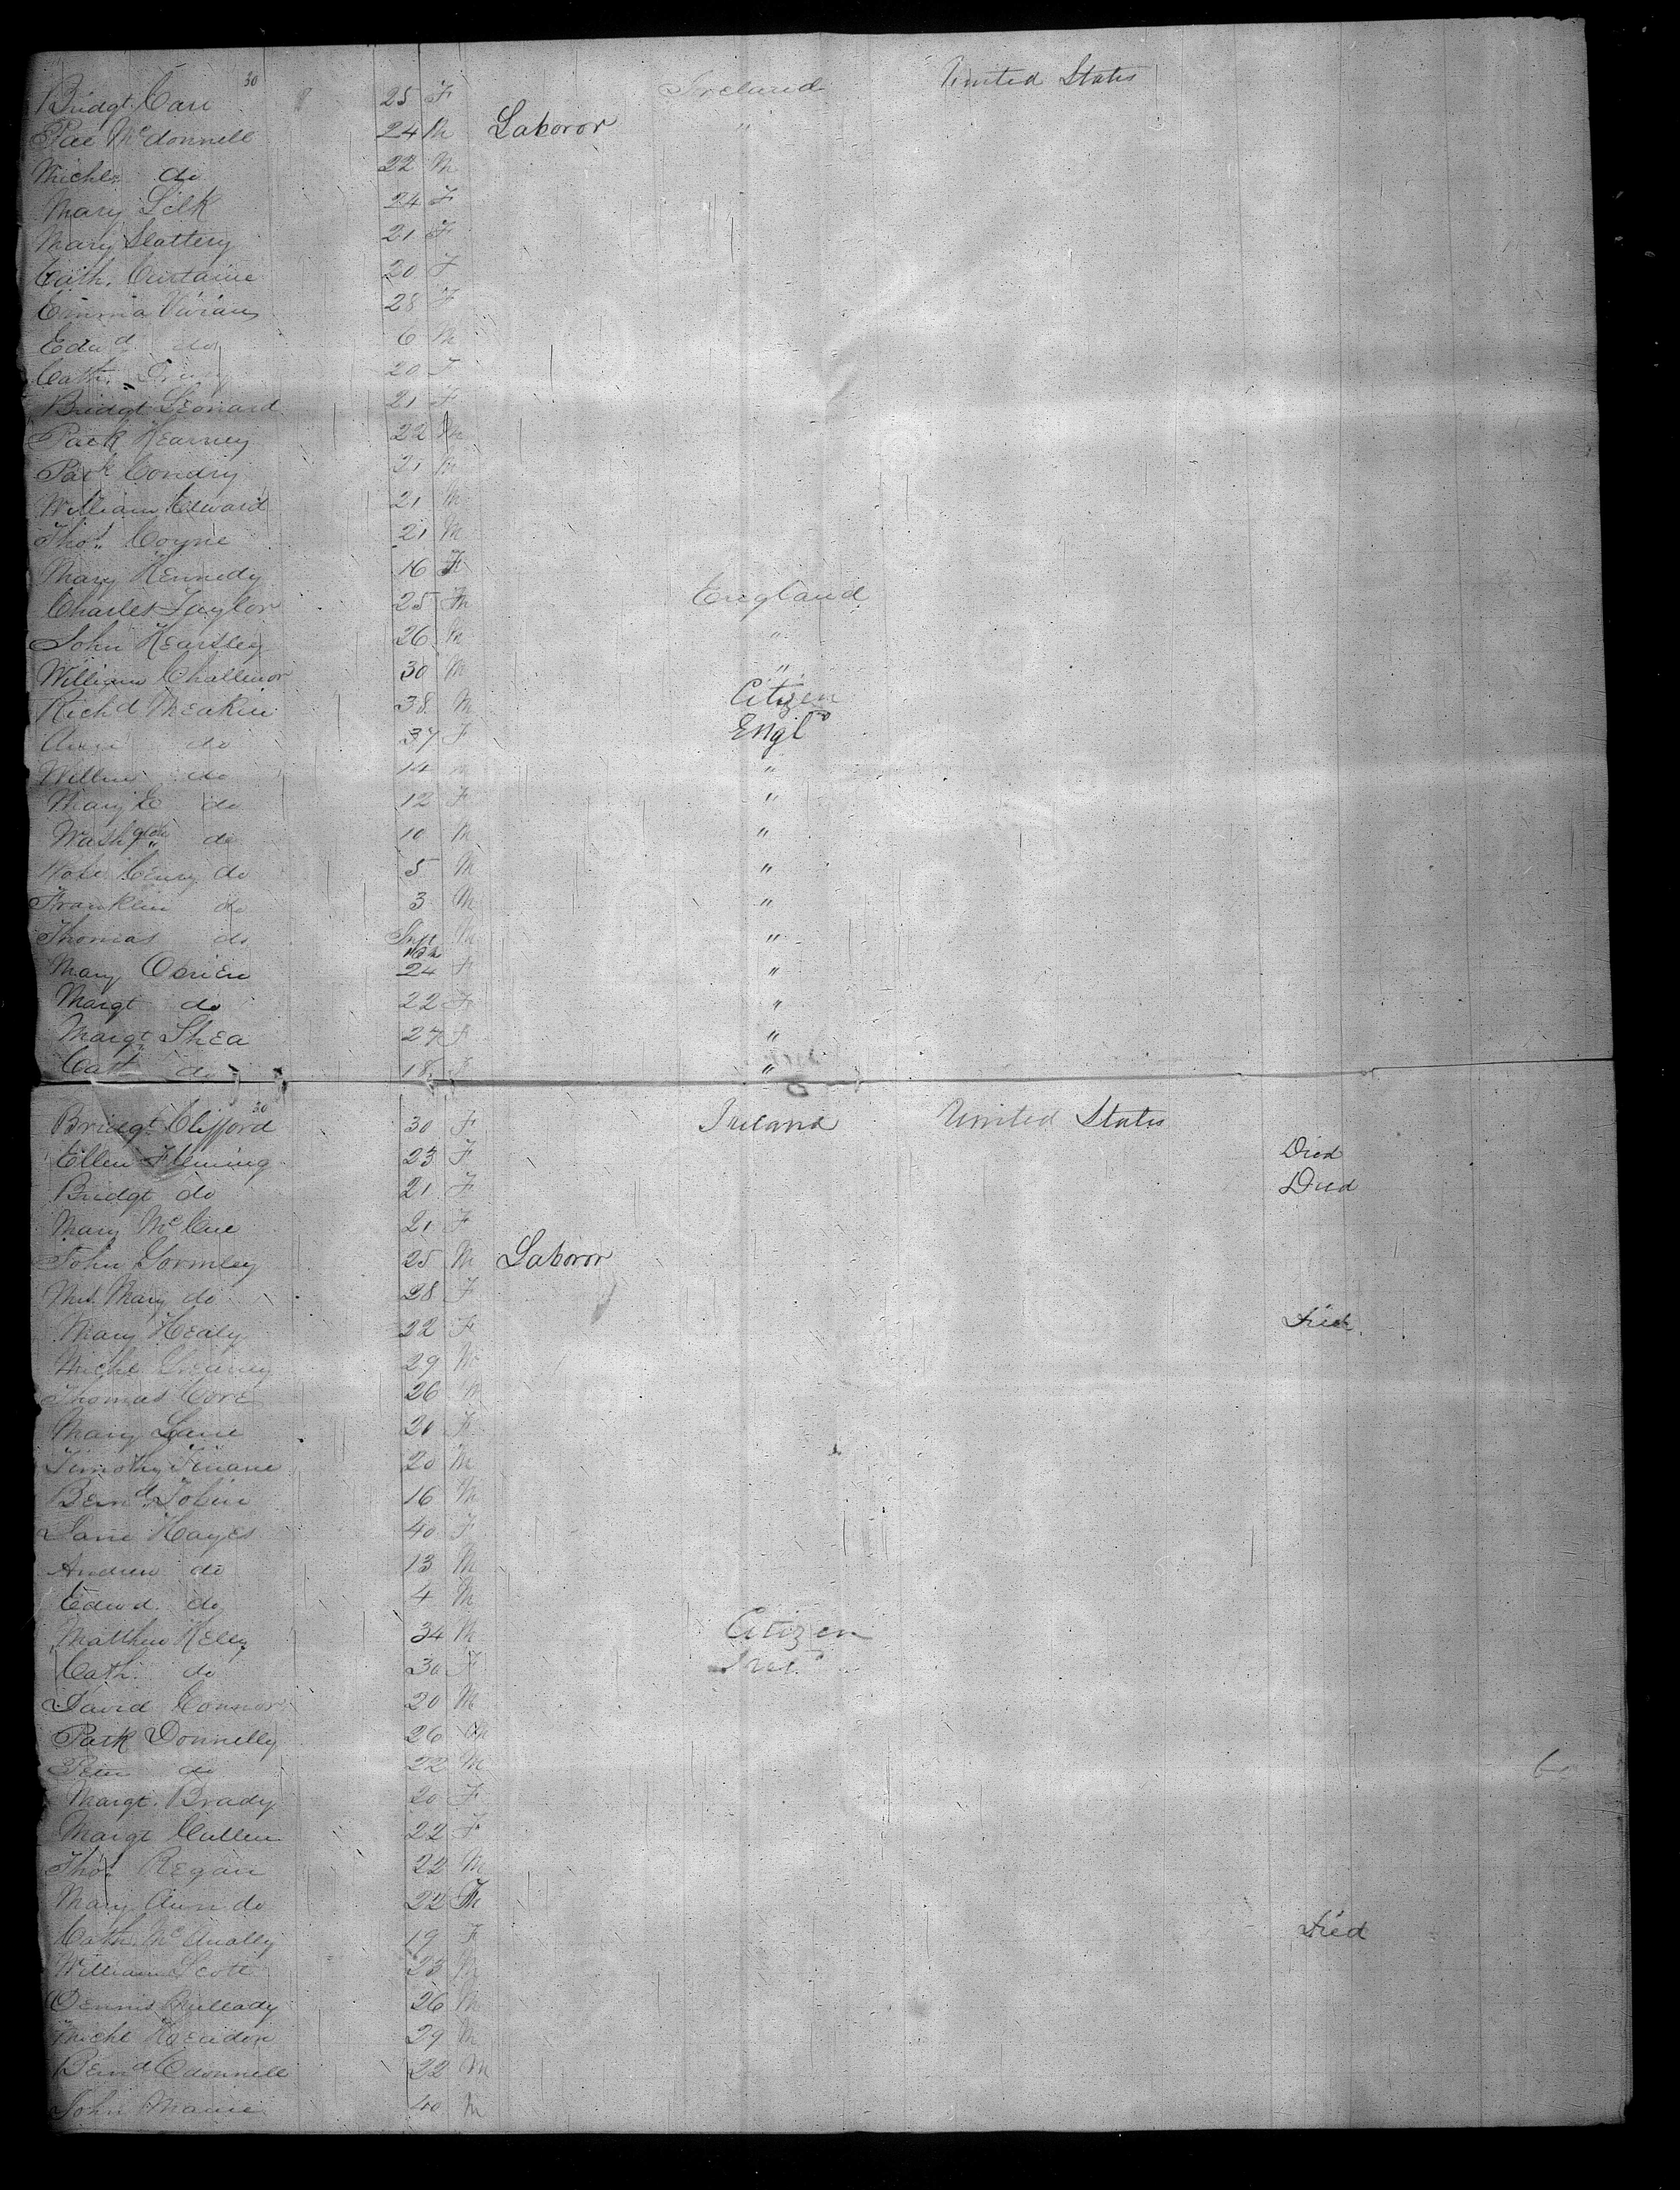 30
Bridgt. Carr 25 F Ireland United States
Pat McDonnell 24 M Laboror "
Michl. do 22 M
Mary Silk 24 F
Mary Slattery 21 F
Cath. Curtaine 20 F
Emma Vivian 28 F
Edwd do 6 M
Cath. 20 F
Bridgt Leonard 21 F
Patk Kearney 22 M
Patk Condry 21 M
William Edward 21 M
Thos. Coyne 21 M
Mary Kennedy 16 F
Charles Taylor 25 M England
John Kearsley 26 M "
William Challinor 30 M "
Richd Meakin 38 M Citizen
Ann do 37 F Engld
Willm do 14 M "
Mary E do 12 F "
Washgton do 10 M "
Henry do 5 M "
Franklin do 3 M "
Thomas do Inft M "
Mary Obrien 24 F "
Margt do 22 F "
Margt Shea 27 F "
Cath do 18 F "
30
Bridgt Clifford 30 F Ireland United States
Ellen Fleming 23 F Died
Bridgt do 21 F Died
Mary McCue 21 F
John Gormley 25 M Laboror
Mrs. Mary do 28 F
Mary Healy 22 F Died
Michl 29 M
Thomas Core 26 M
Mary Lane 20 F
Timothy 20 M
Bernd. Tobin 16 M
Jane Hayes 40 F
Andrew do 13 M
Edwd. do 4 M
Matthew Kelly 34 M Citizen
Cath. do 30 F Ireld
David Connor 20 M
Patk Donnelly 26 M
Peter do 22 M
Margt. Brady 20 F
Margt Cullen 22 F
Thos. Regan 22 M
Mary Ann do 22 F
Cath. McAnally 19 F Died
William Scott 23 M
Dennis 26 M
Michl 29 M
Bernd Odonnell 22 M
John 40 M